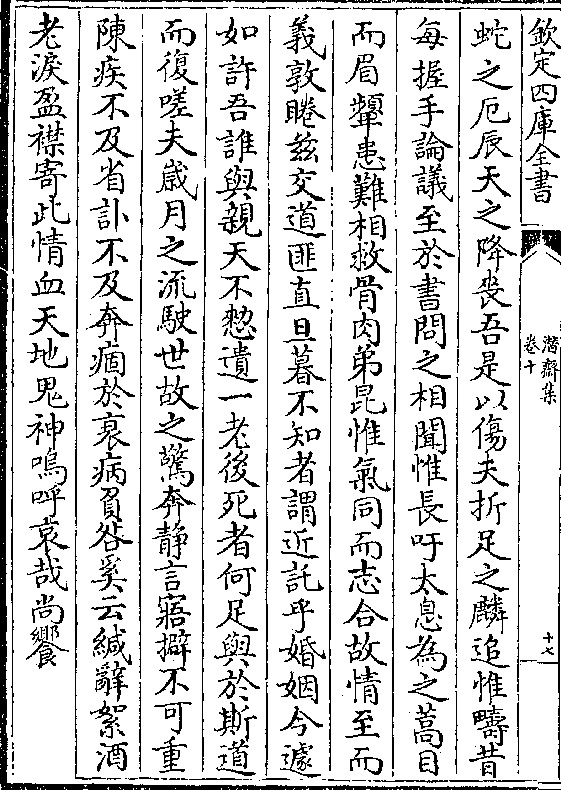 欽定四庫全書
潛齋集
卷十
十七
蛇之厄辰天之降喪吾是以傷夫折足之麟追惟疇昔
每握手論議至於書問之相聞惟長吁太息為之蒿目
而眉顰患難相救骨肉弟昆惟氣同而志合故情至而
義敦睠兹交道匪直旦暮不知者謂近託乎婚姻今遽
如許吾誰與親天不憗遺一老後死者何足與於斯道
而復嗟夫歲月之流駛世故之驚奔静言寤擗不可重
陳疾不及省訃不及奔痼於衰病負咎奚云緘辭絮酒
老淚盈襟寄此情血天地鬼神嗚呼哀哉尚饗